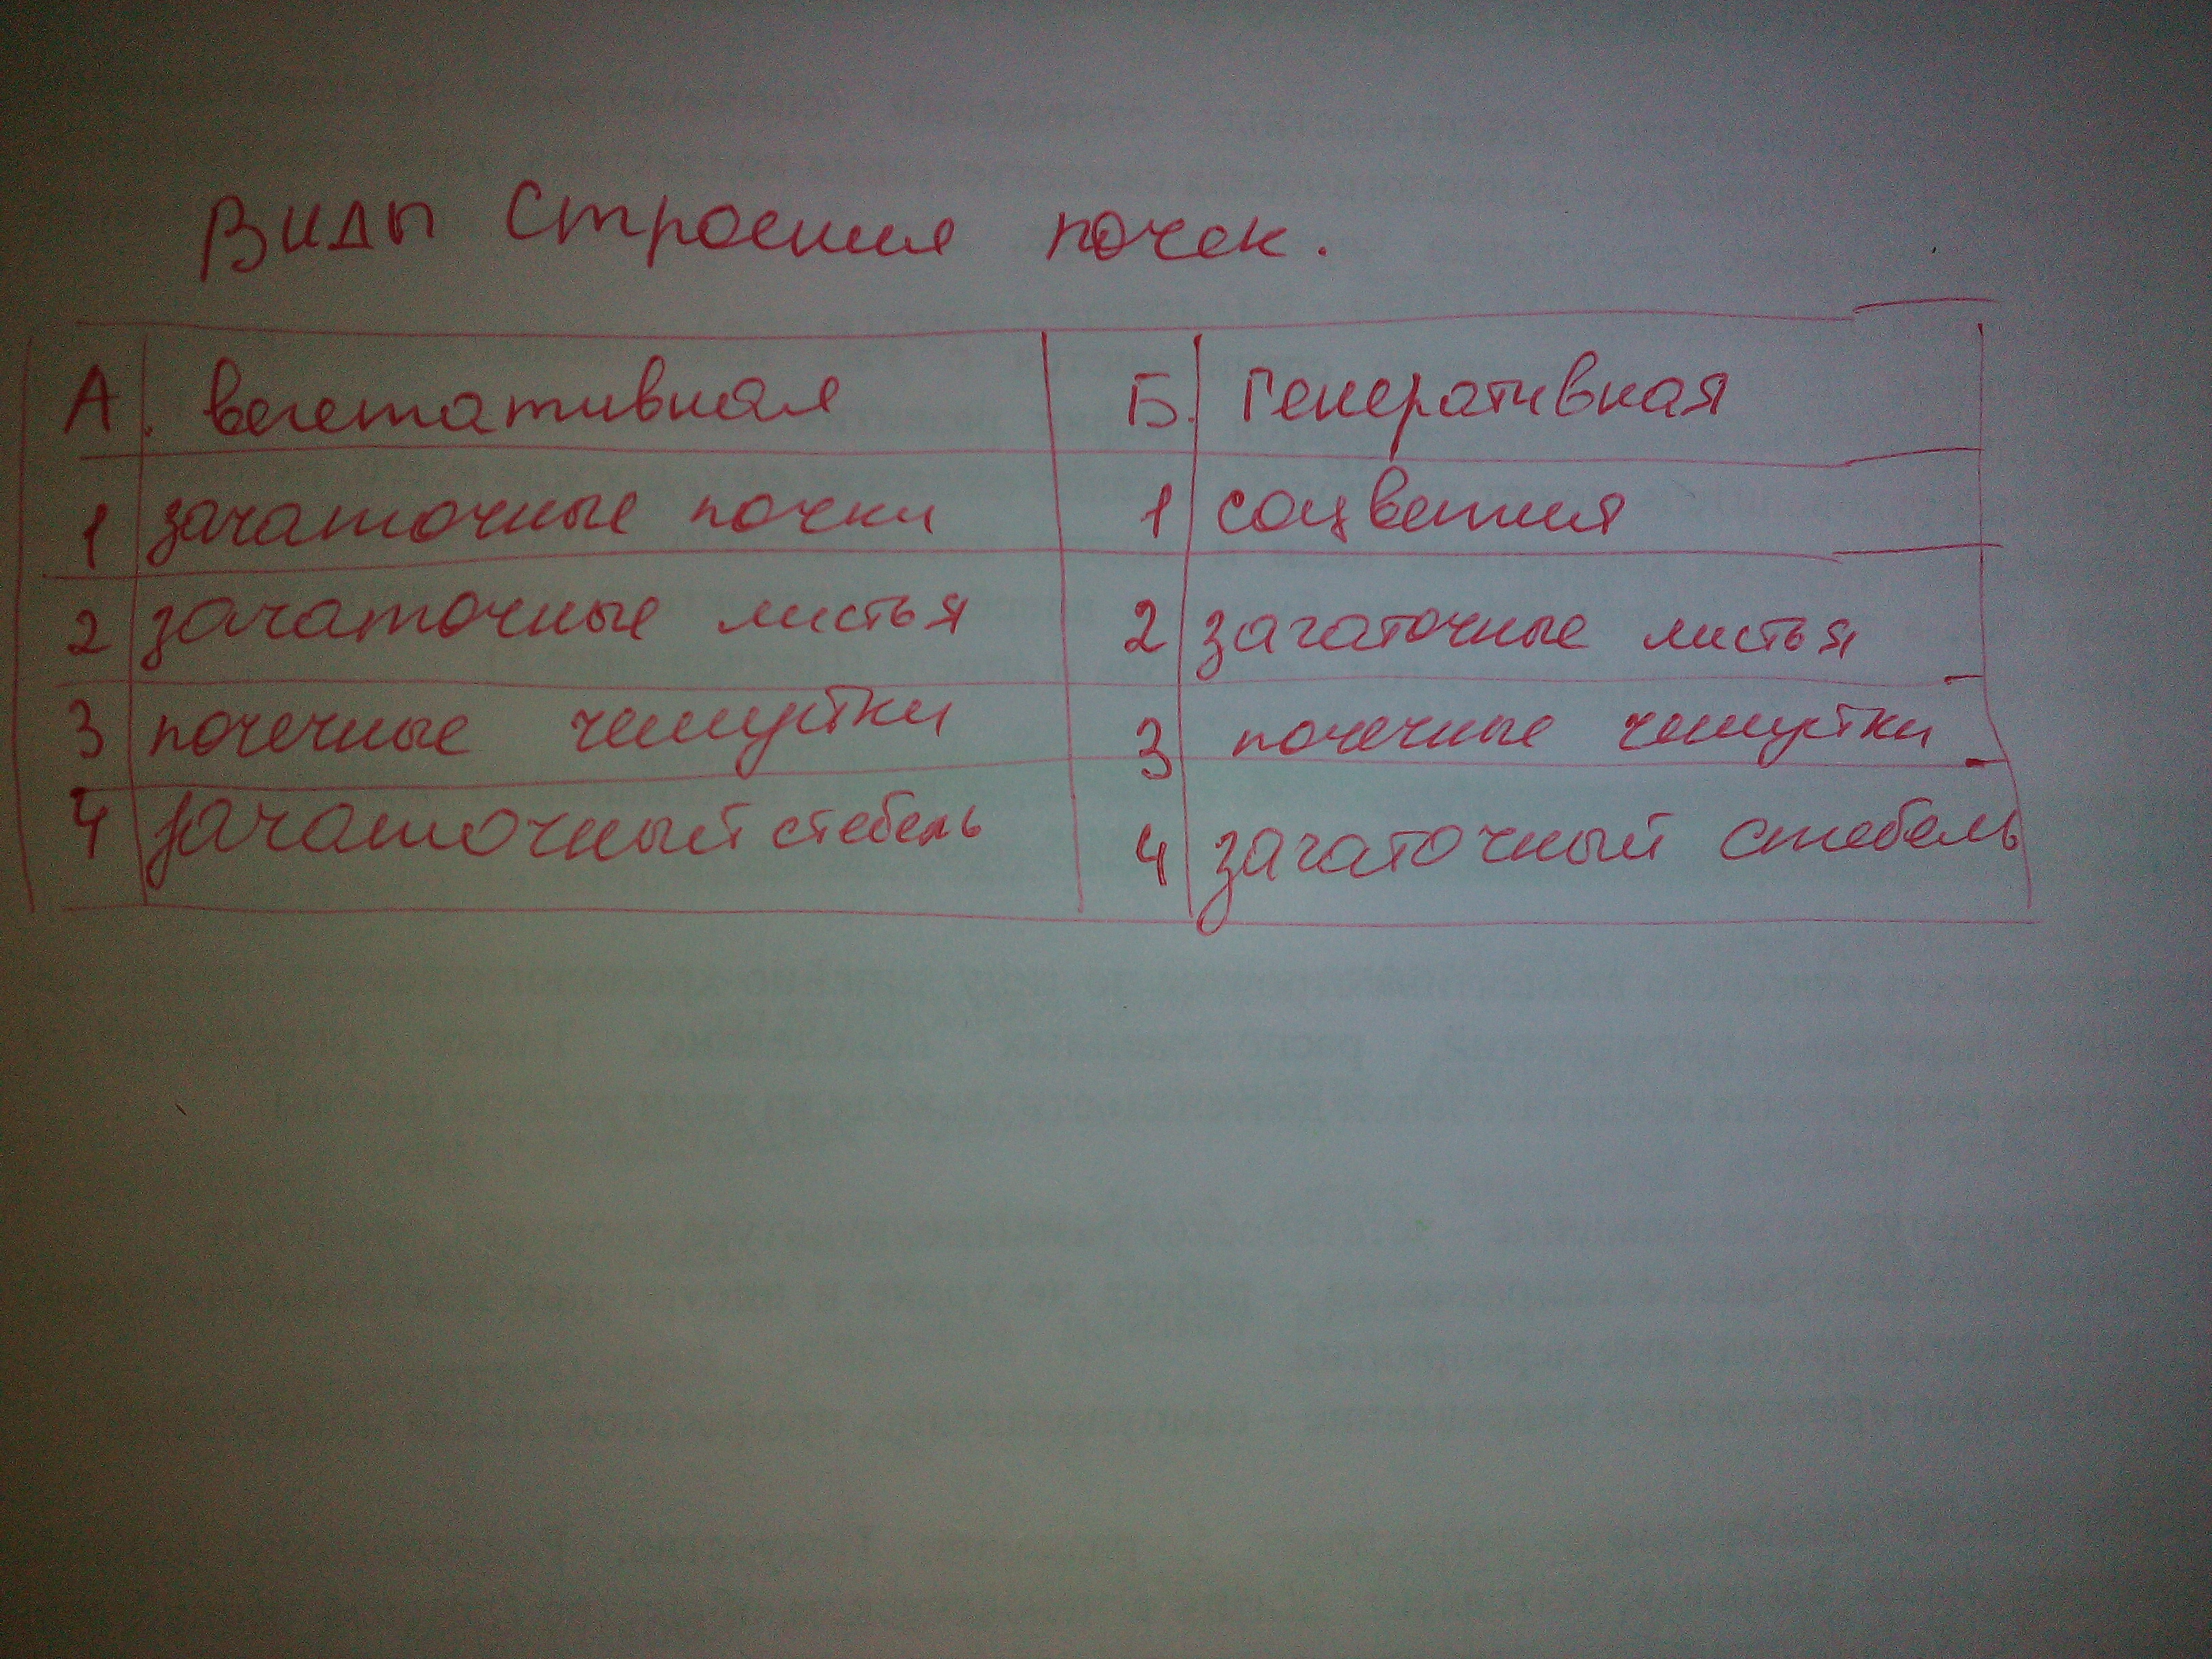 Виды Строения почек.
А. вегетативная Б. Генеративная
1 зачаточные почки 1 соцветия
2 зачаточные листья 2 зачаточные листья
3 почечные чешуйки 3 почечные чешуйки
4 зачаточный стебель 4 зачаточный стебель